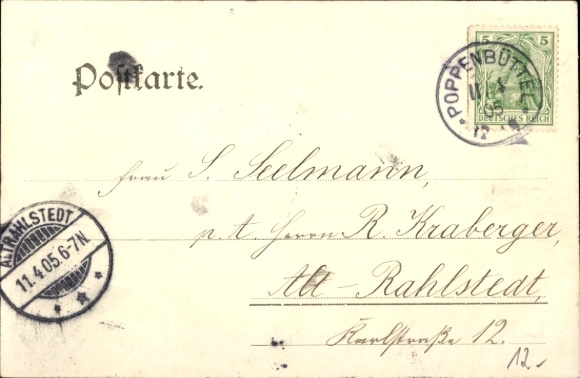 Postkarte.
5 5
DEUTSCHES REICH
POPPENBÜTTEL
05
Frau S. Seelmann,
p. A. Herrn R. Kraberger,
Alt-Rahlstedt,
Karlstraße 12.
ALTRAHLSTEDT
11.4.05.6-7N.
12.-